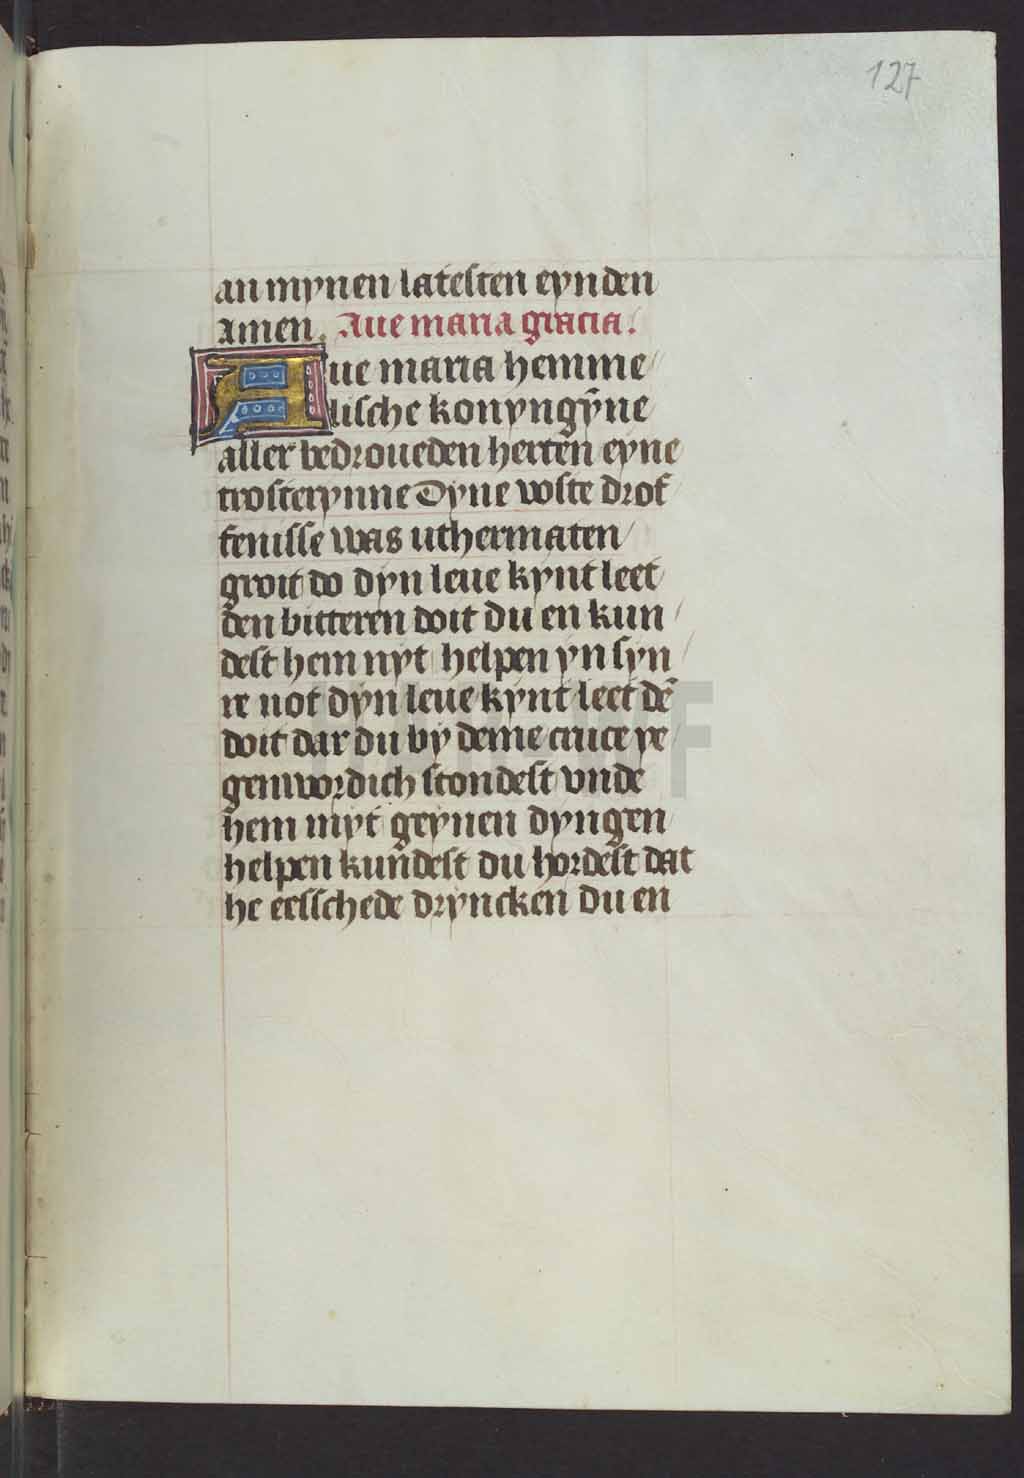 127
an mynen latesten eynden
amen. Aue maria gracia.
Aue maria hemme
lische konyngÿne
aller bedroueden herten eyne
trosterynne Dyne voste drof
fenisse was uthermaten
groit do dyn leue kynt leet
den bitteren doit du en kun
dest hem nyt helpen yn syn
re not dyn leue kynt leet dē
doit dar du by deme cruce ye
genwordich stondest vnde
hem myt geynen dyngen
helpen kundest du hordest dat
he eesschede dryncken du en